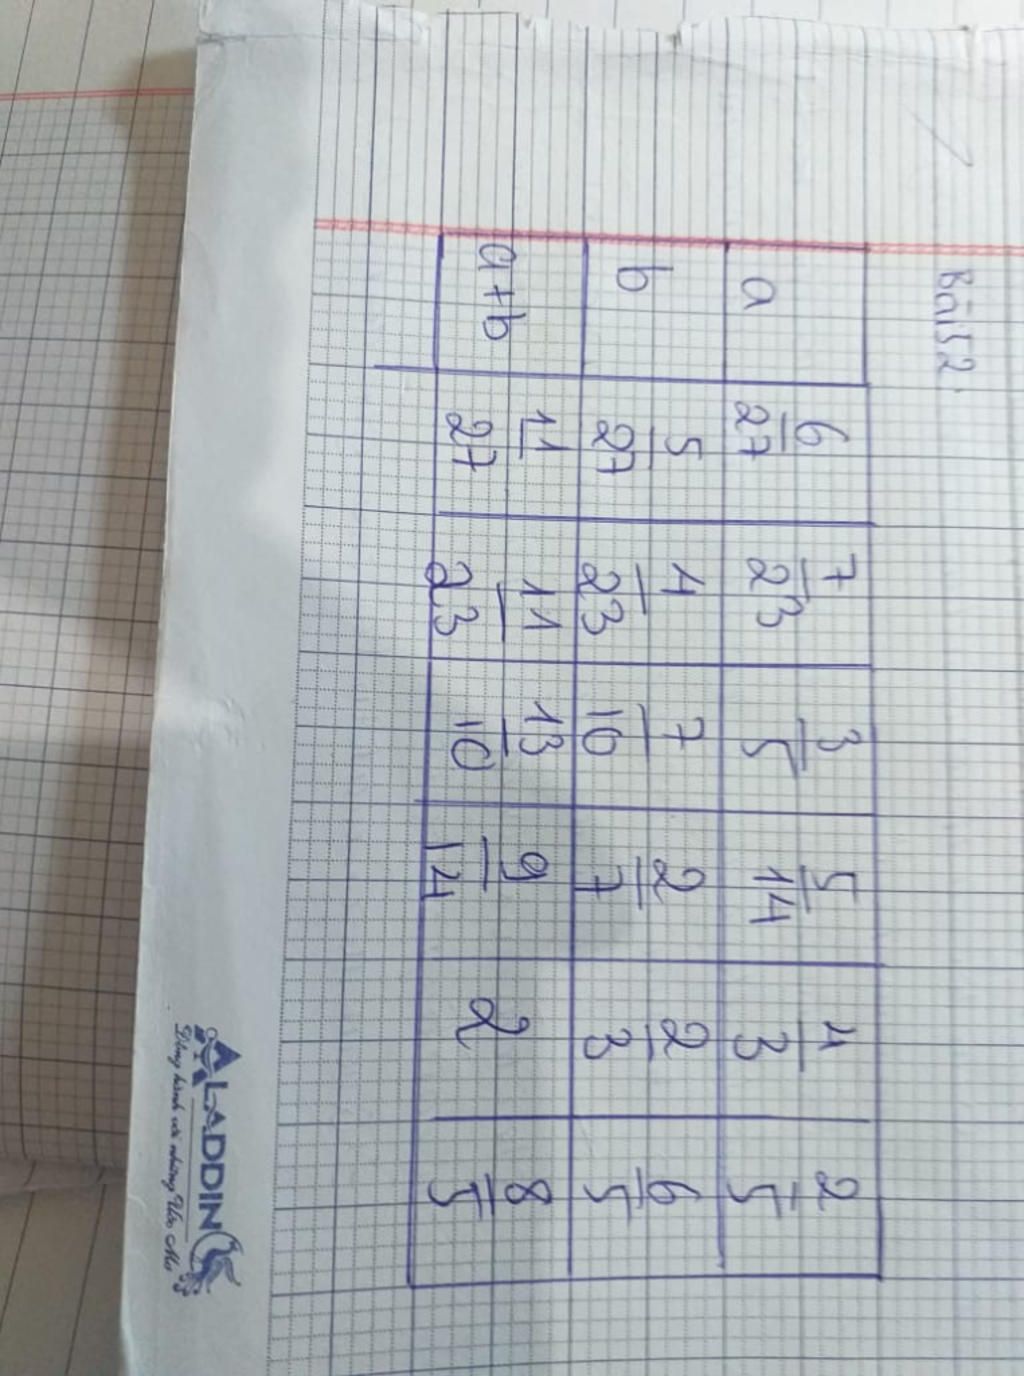 Bài 2:
a 6/27 7/23 3/5 5/14 4/3 2/5
b 5/27 4/23 7/10 2/7 2/3 6/5
a+b 11/27 11/23 13/10 9/14 2 8/5
ALADDIN
Đồng hành với những Ước Mơ